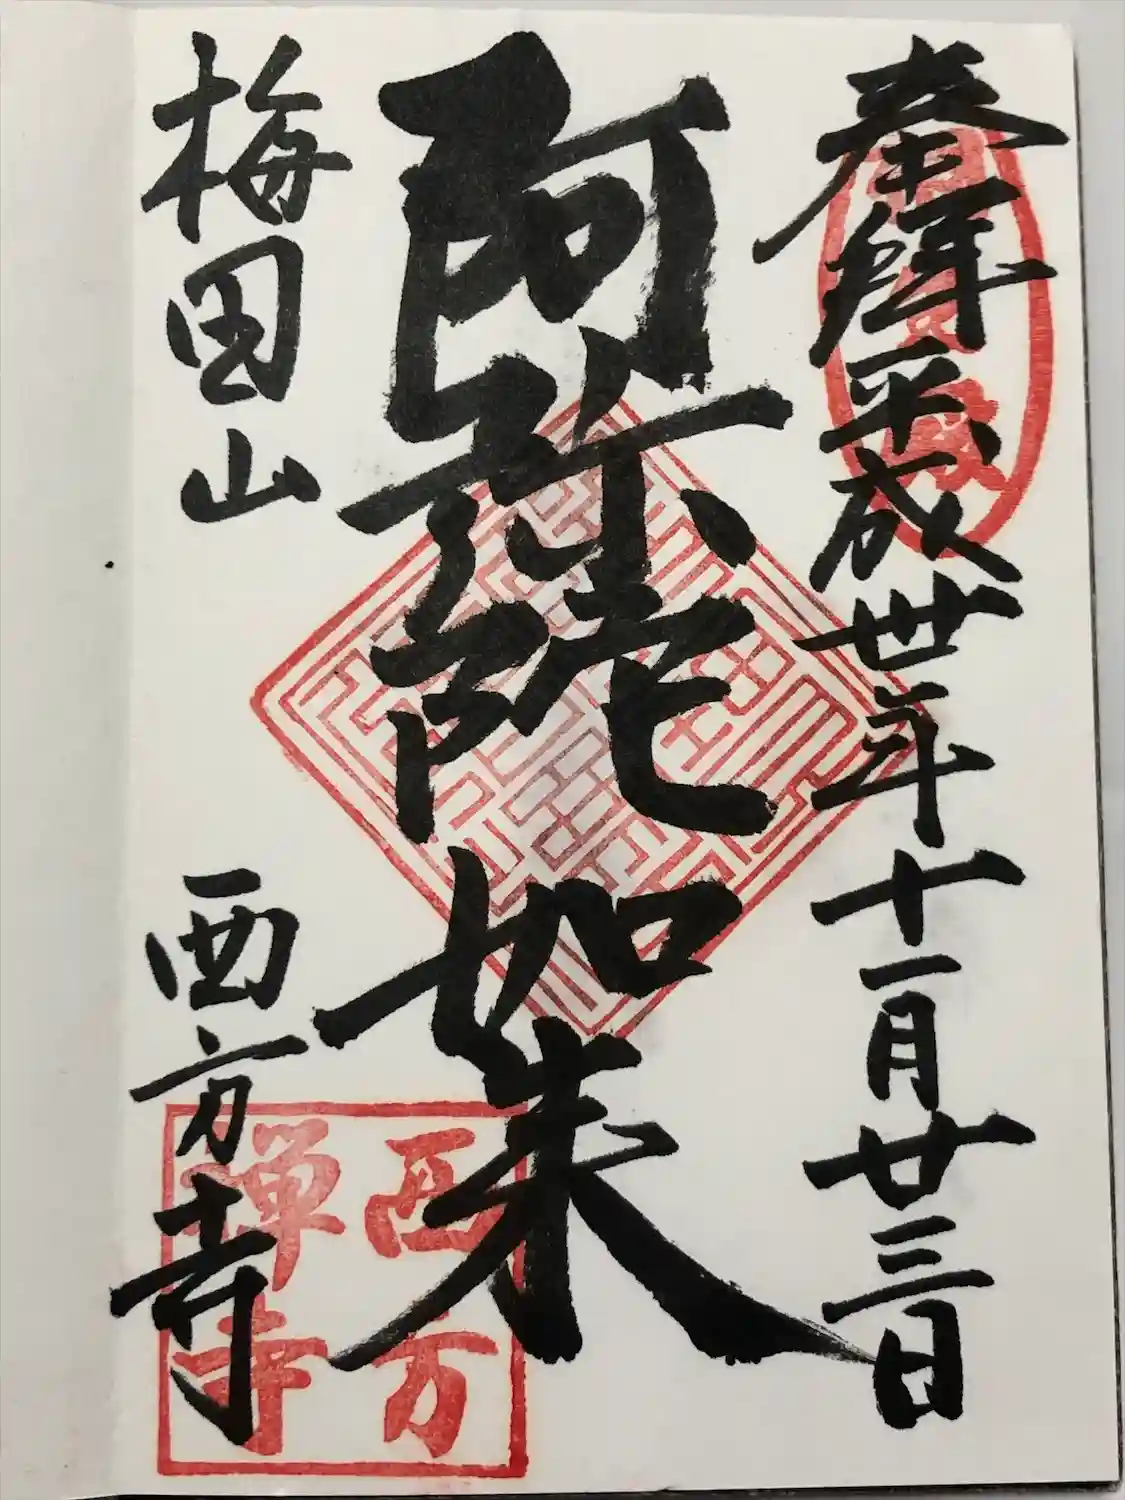 奉拝平成卅年十一月廿三日
阿弥陀如来
梅田山 西方寺
西方
禅寺